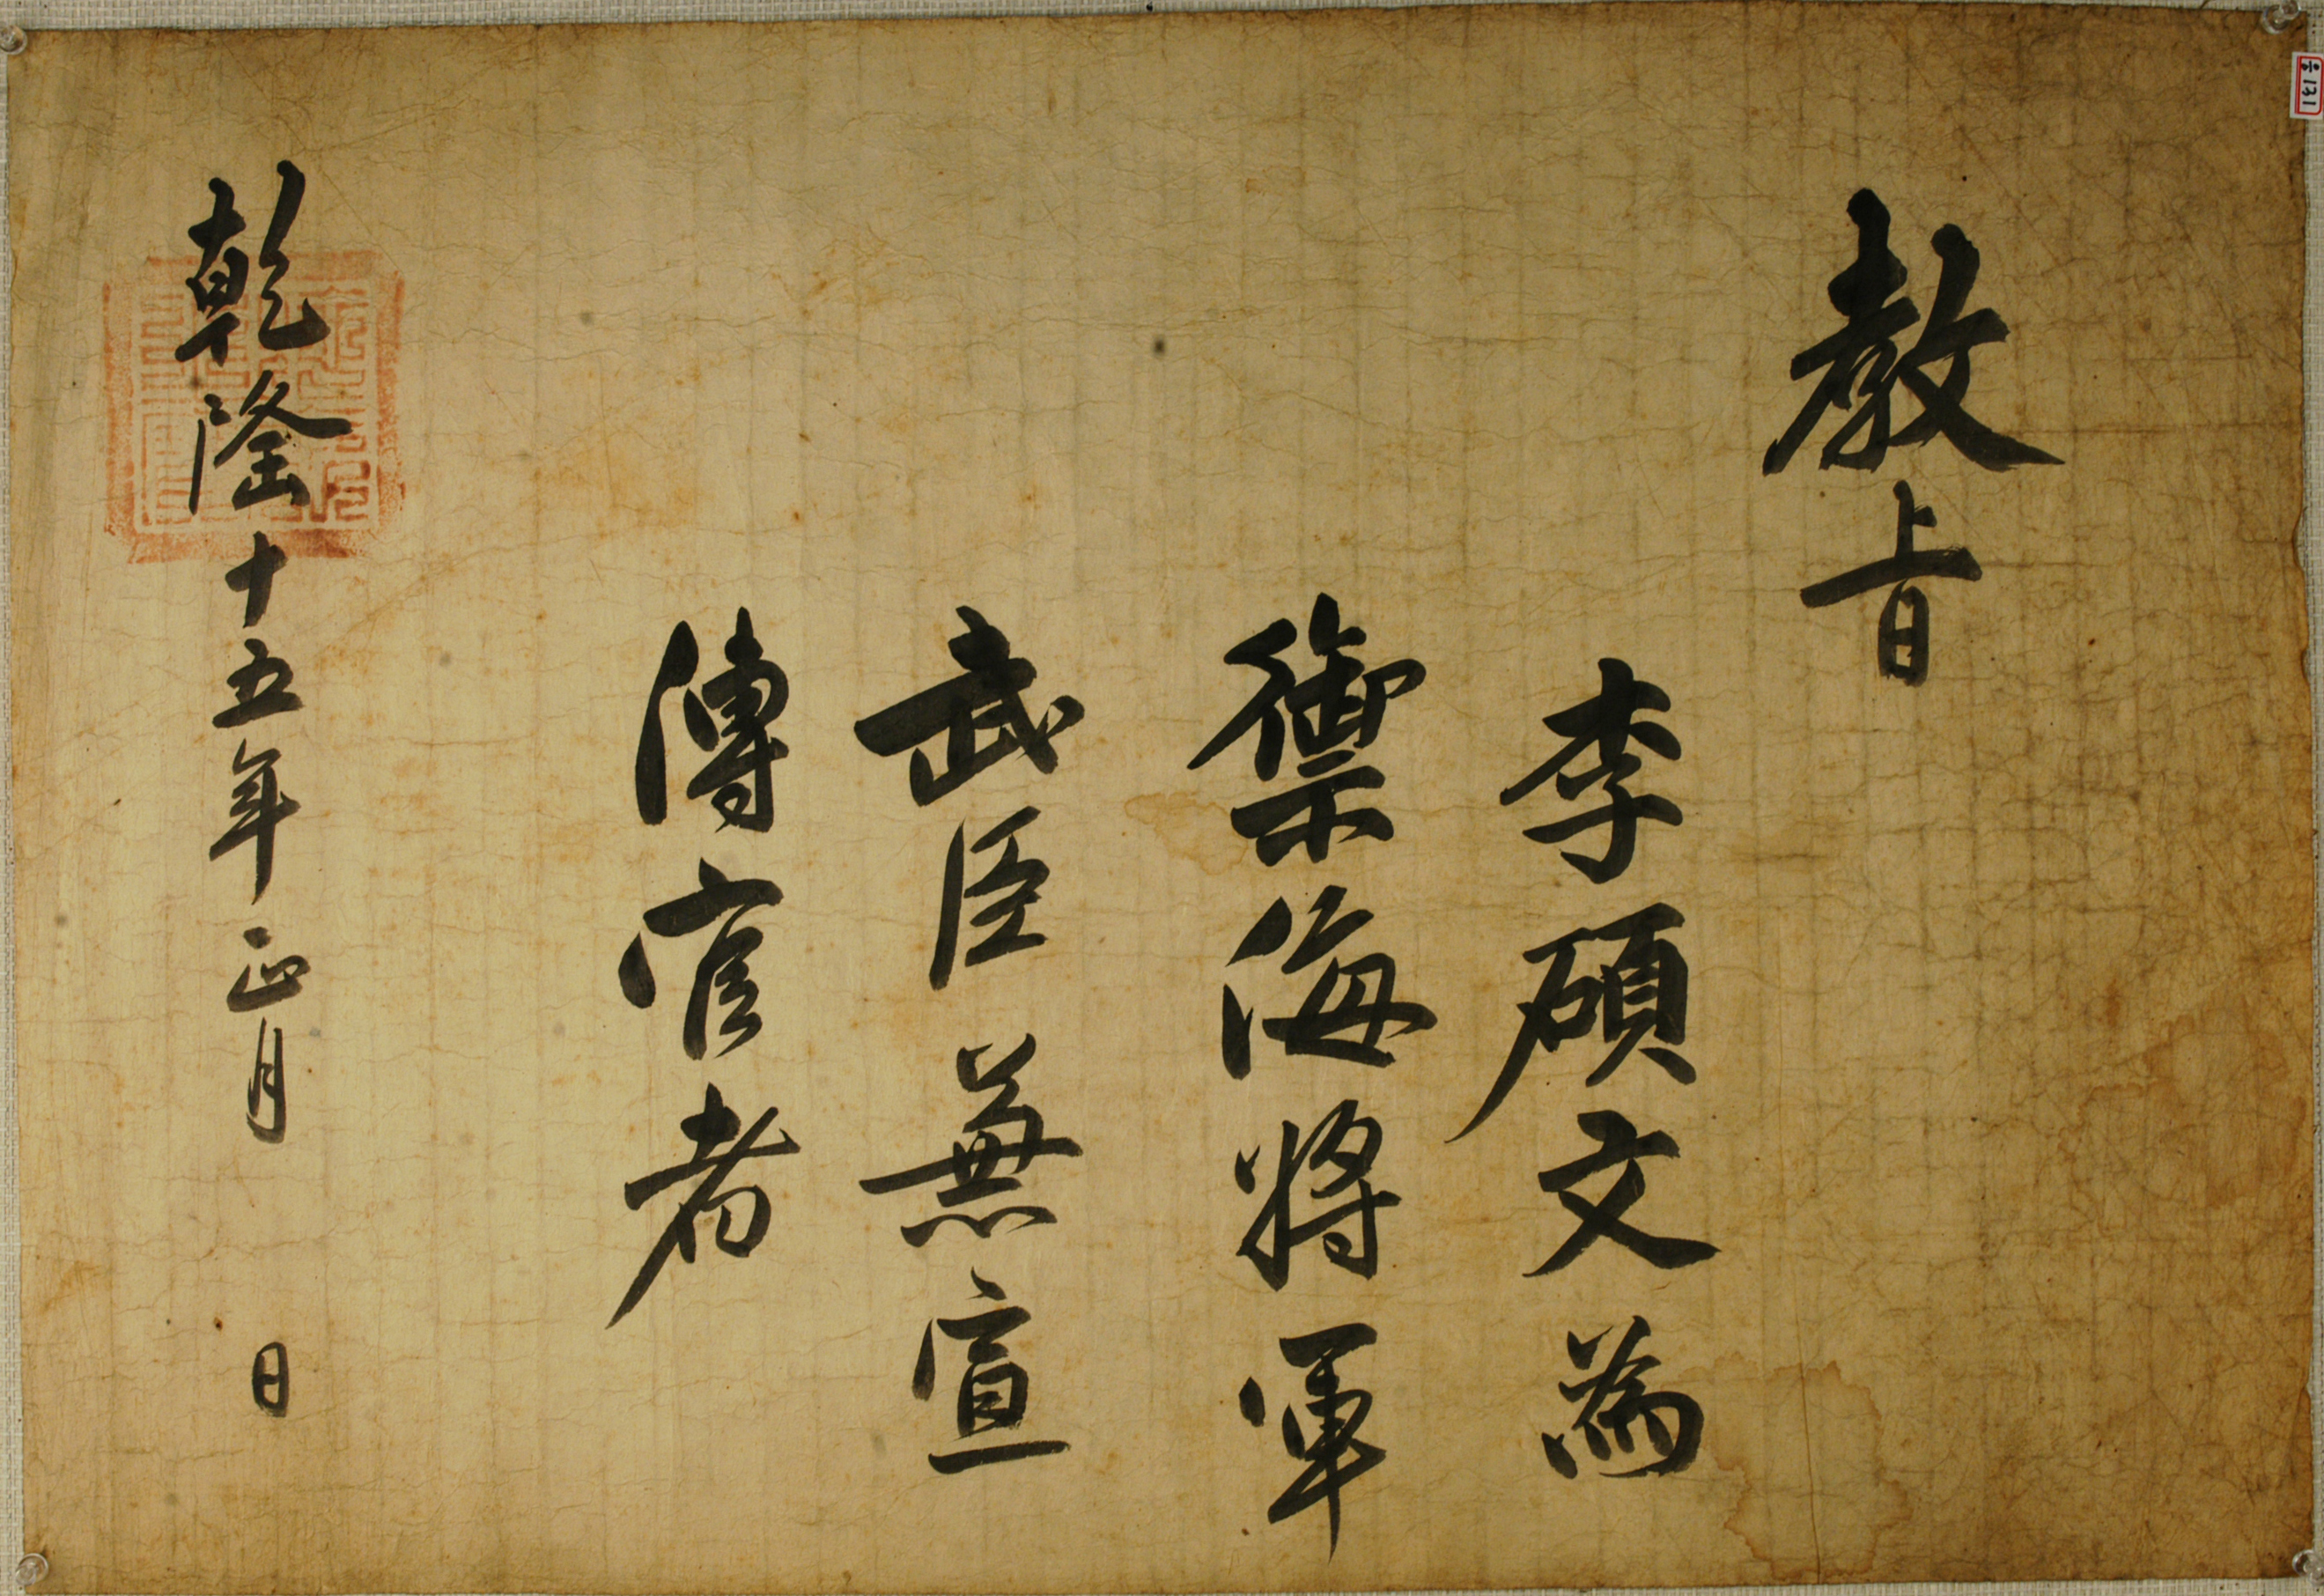 教旨
李碩文爲
禦侮將軍
武臣兼宣
傳官者
乾隆十五年正月 日
131